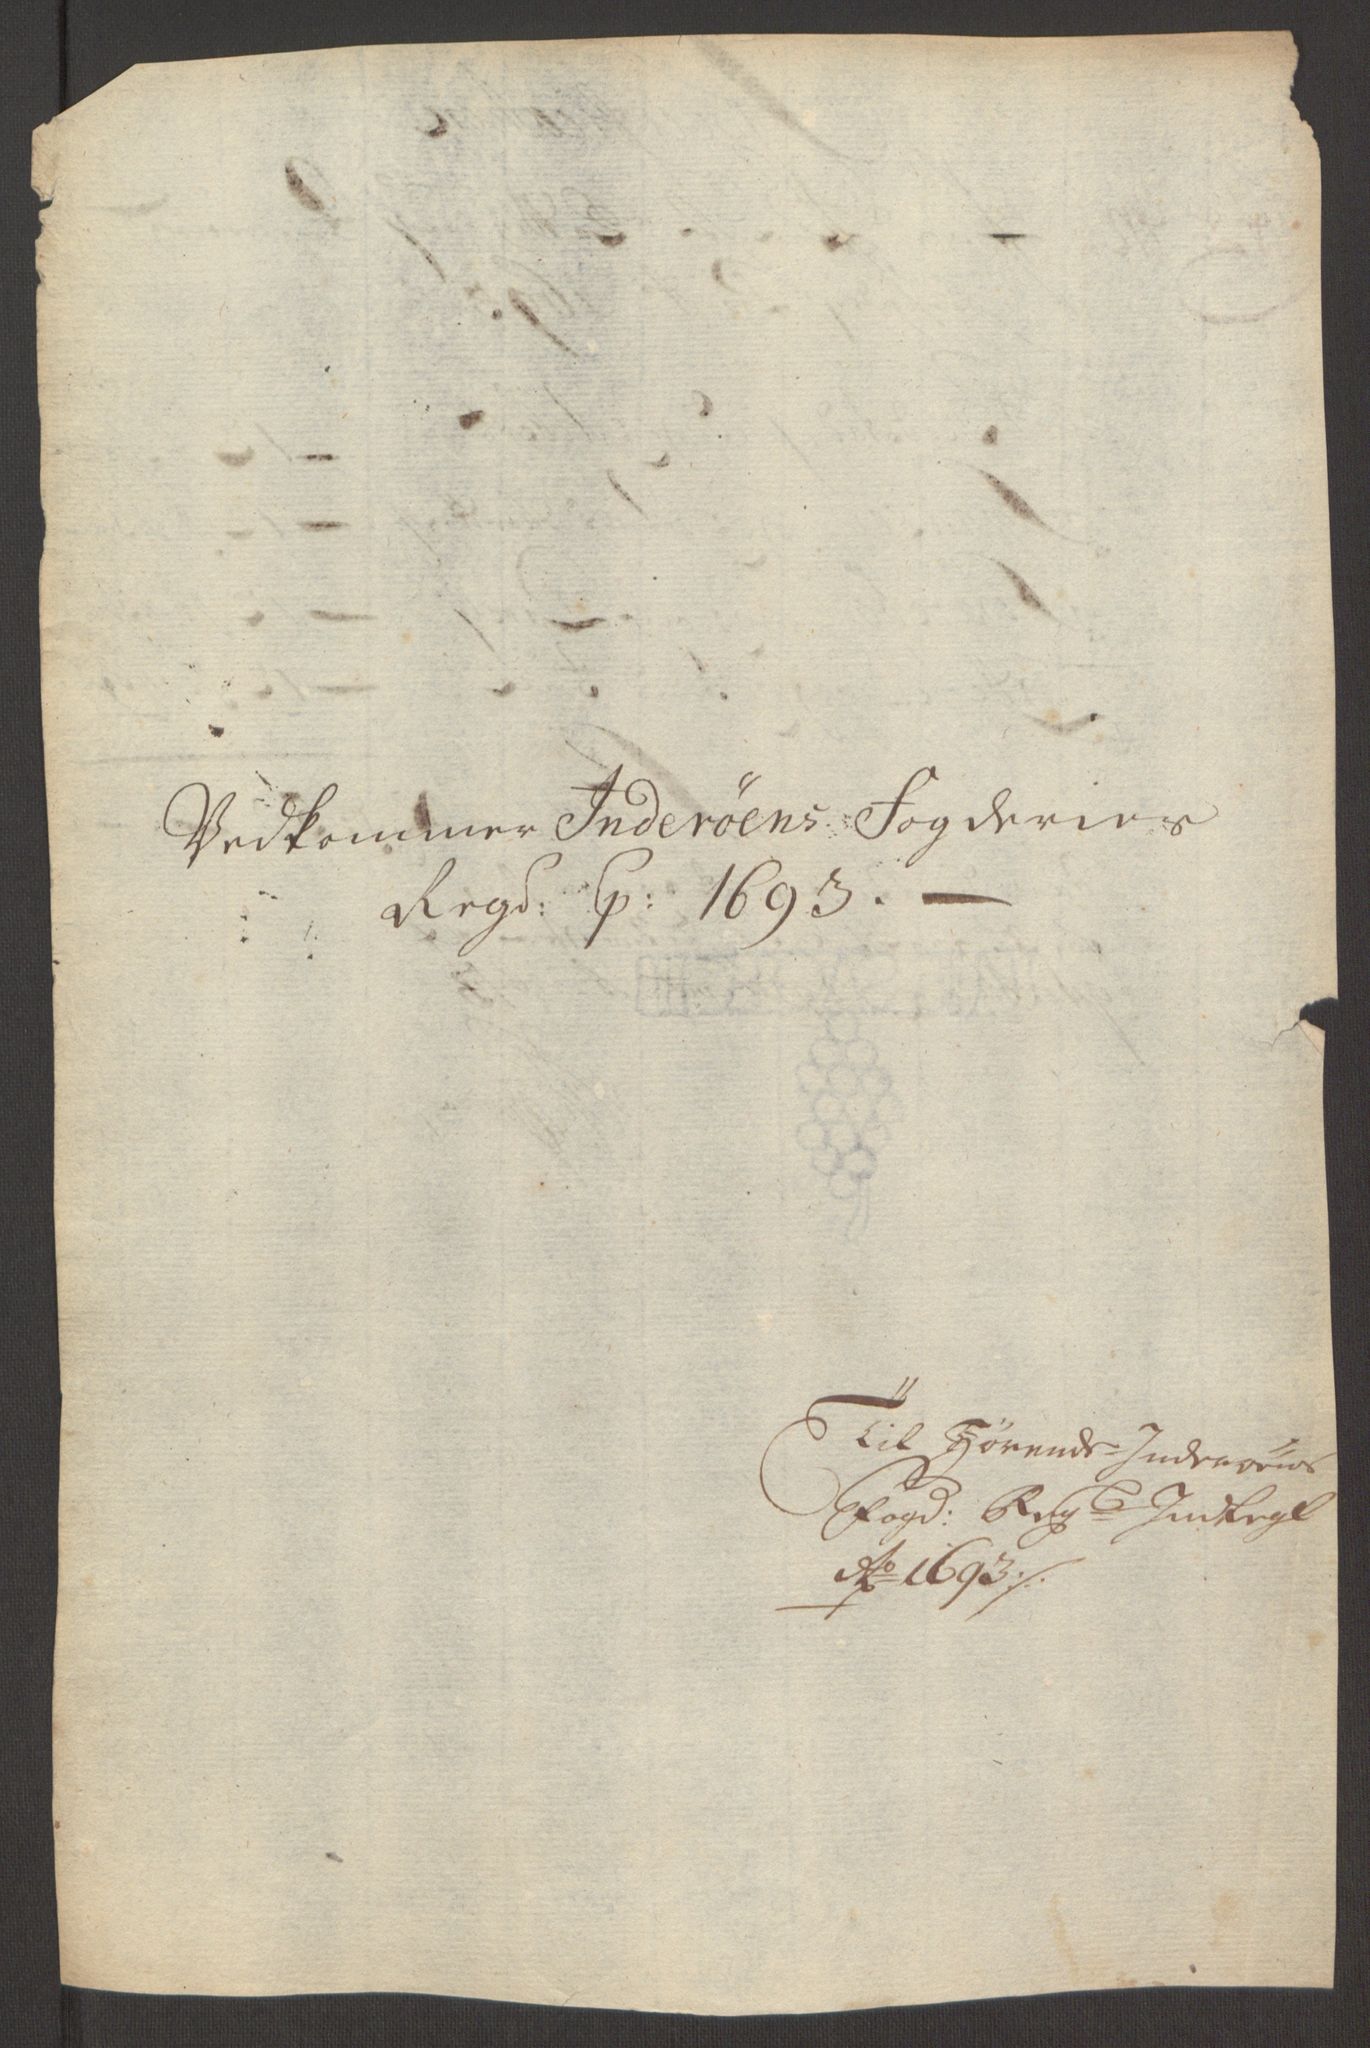 Vedkommer Inderöens Fogderies
Regsz: p: 1693. —
Til Hörende Inderøens
Fogd: Regsz
Ao 1693 ./.